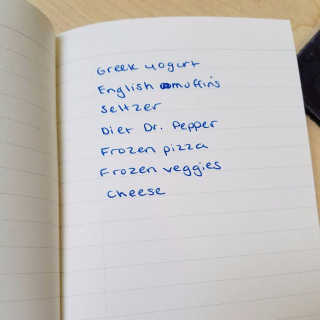 Greek yogurt
English muffins
Seltzer
Diet Dr. Pepper
Frozen pizza
Frozen veggies
cheese